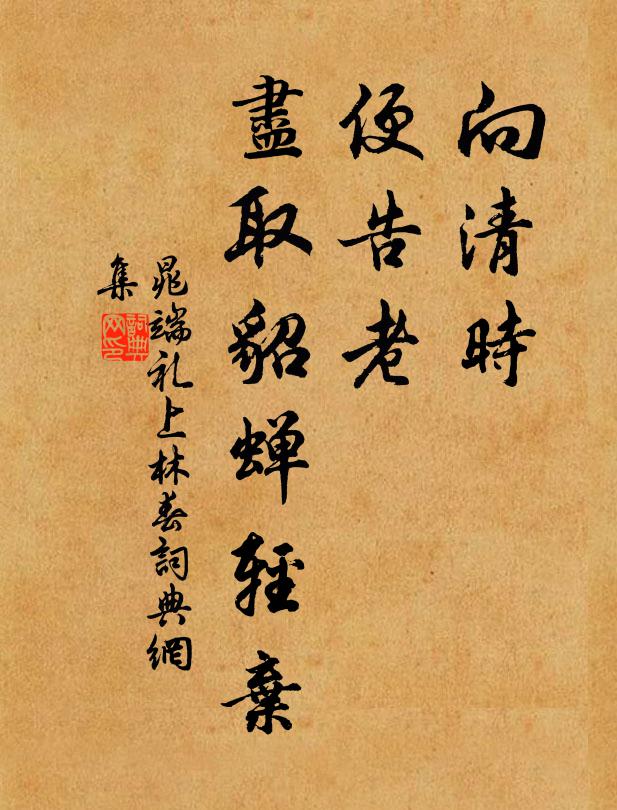 向清時
便告老
盡取貂蟬輕棄
晁端礼上林春詞典網
集
詞典
网印